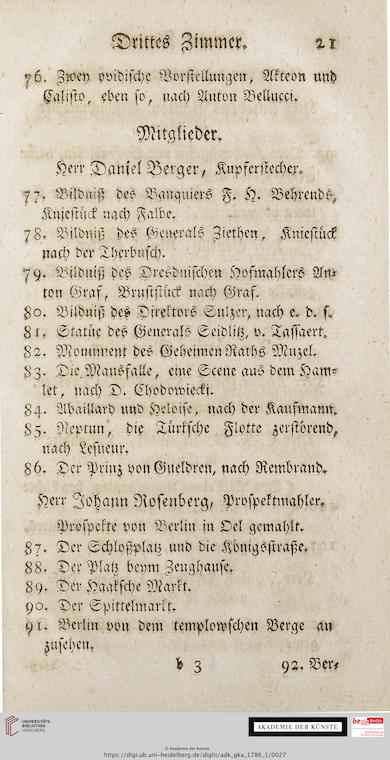 Drittes Zimmer. 21
76. Zwey ovidische Vorstellungen, Akteon und
Calisto, eben so, nach Anton Bellucci.
Mitglieder.
Herr Daniel Berger, Kupferstecher.
77. Bildniß des Banquiers F. H. Behrends,
Kniestück nach Falbe.
78. Bildniß des Generals Ziethen, Kniestück
nach der Therbusch.
79. Bildniß des Dresdnischen Hofmahlers An-
ton Graf, Bruststück nach Graf.
80. Bildniß des Direktors Sulzer, nach e. d. s.
81. Statüe des Generals Seidlitz, v. Tassaert.
82. Monument des Geheimen Raths Muzel.
83. Die Mausfalle, eine Scene aus dem Ham-
let, nach D. Chodowiecki.
84. Abaillard und Heloise, nach der Kaufmann.
85. Neptun, die Türksche Flotte zerstörend,
nach Lesueur.
86. Der Prinz von Gueldren, nach Rembrand.
Herr Johann Rosenberg, Prospektmahler.
Prospekte von Berlin in Oel gemahlt.
87. Der Schloßplatz und die Königsstraße.
88. Der Platz beym Zeughause.
89. Der Haaksche Markt.
90. Der Spittelmarkt.
91. Berlin von dem templowschen Berge an
zusehen.
b 3 92. Ber-
UNIVERSITÄTS-
BIBLIOTHEK
HEIDELBERG
AKADEMIE DER KÜNSTE
be Berlin
© Akademie der Künste
https://digi.ub.uni-heidelberg.de/diglit/adk_gka_1786_1/0027